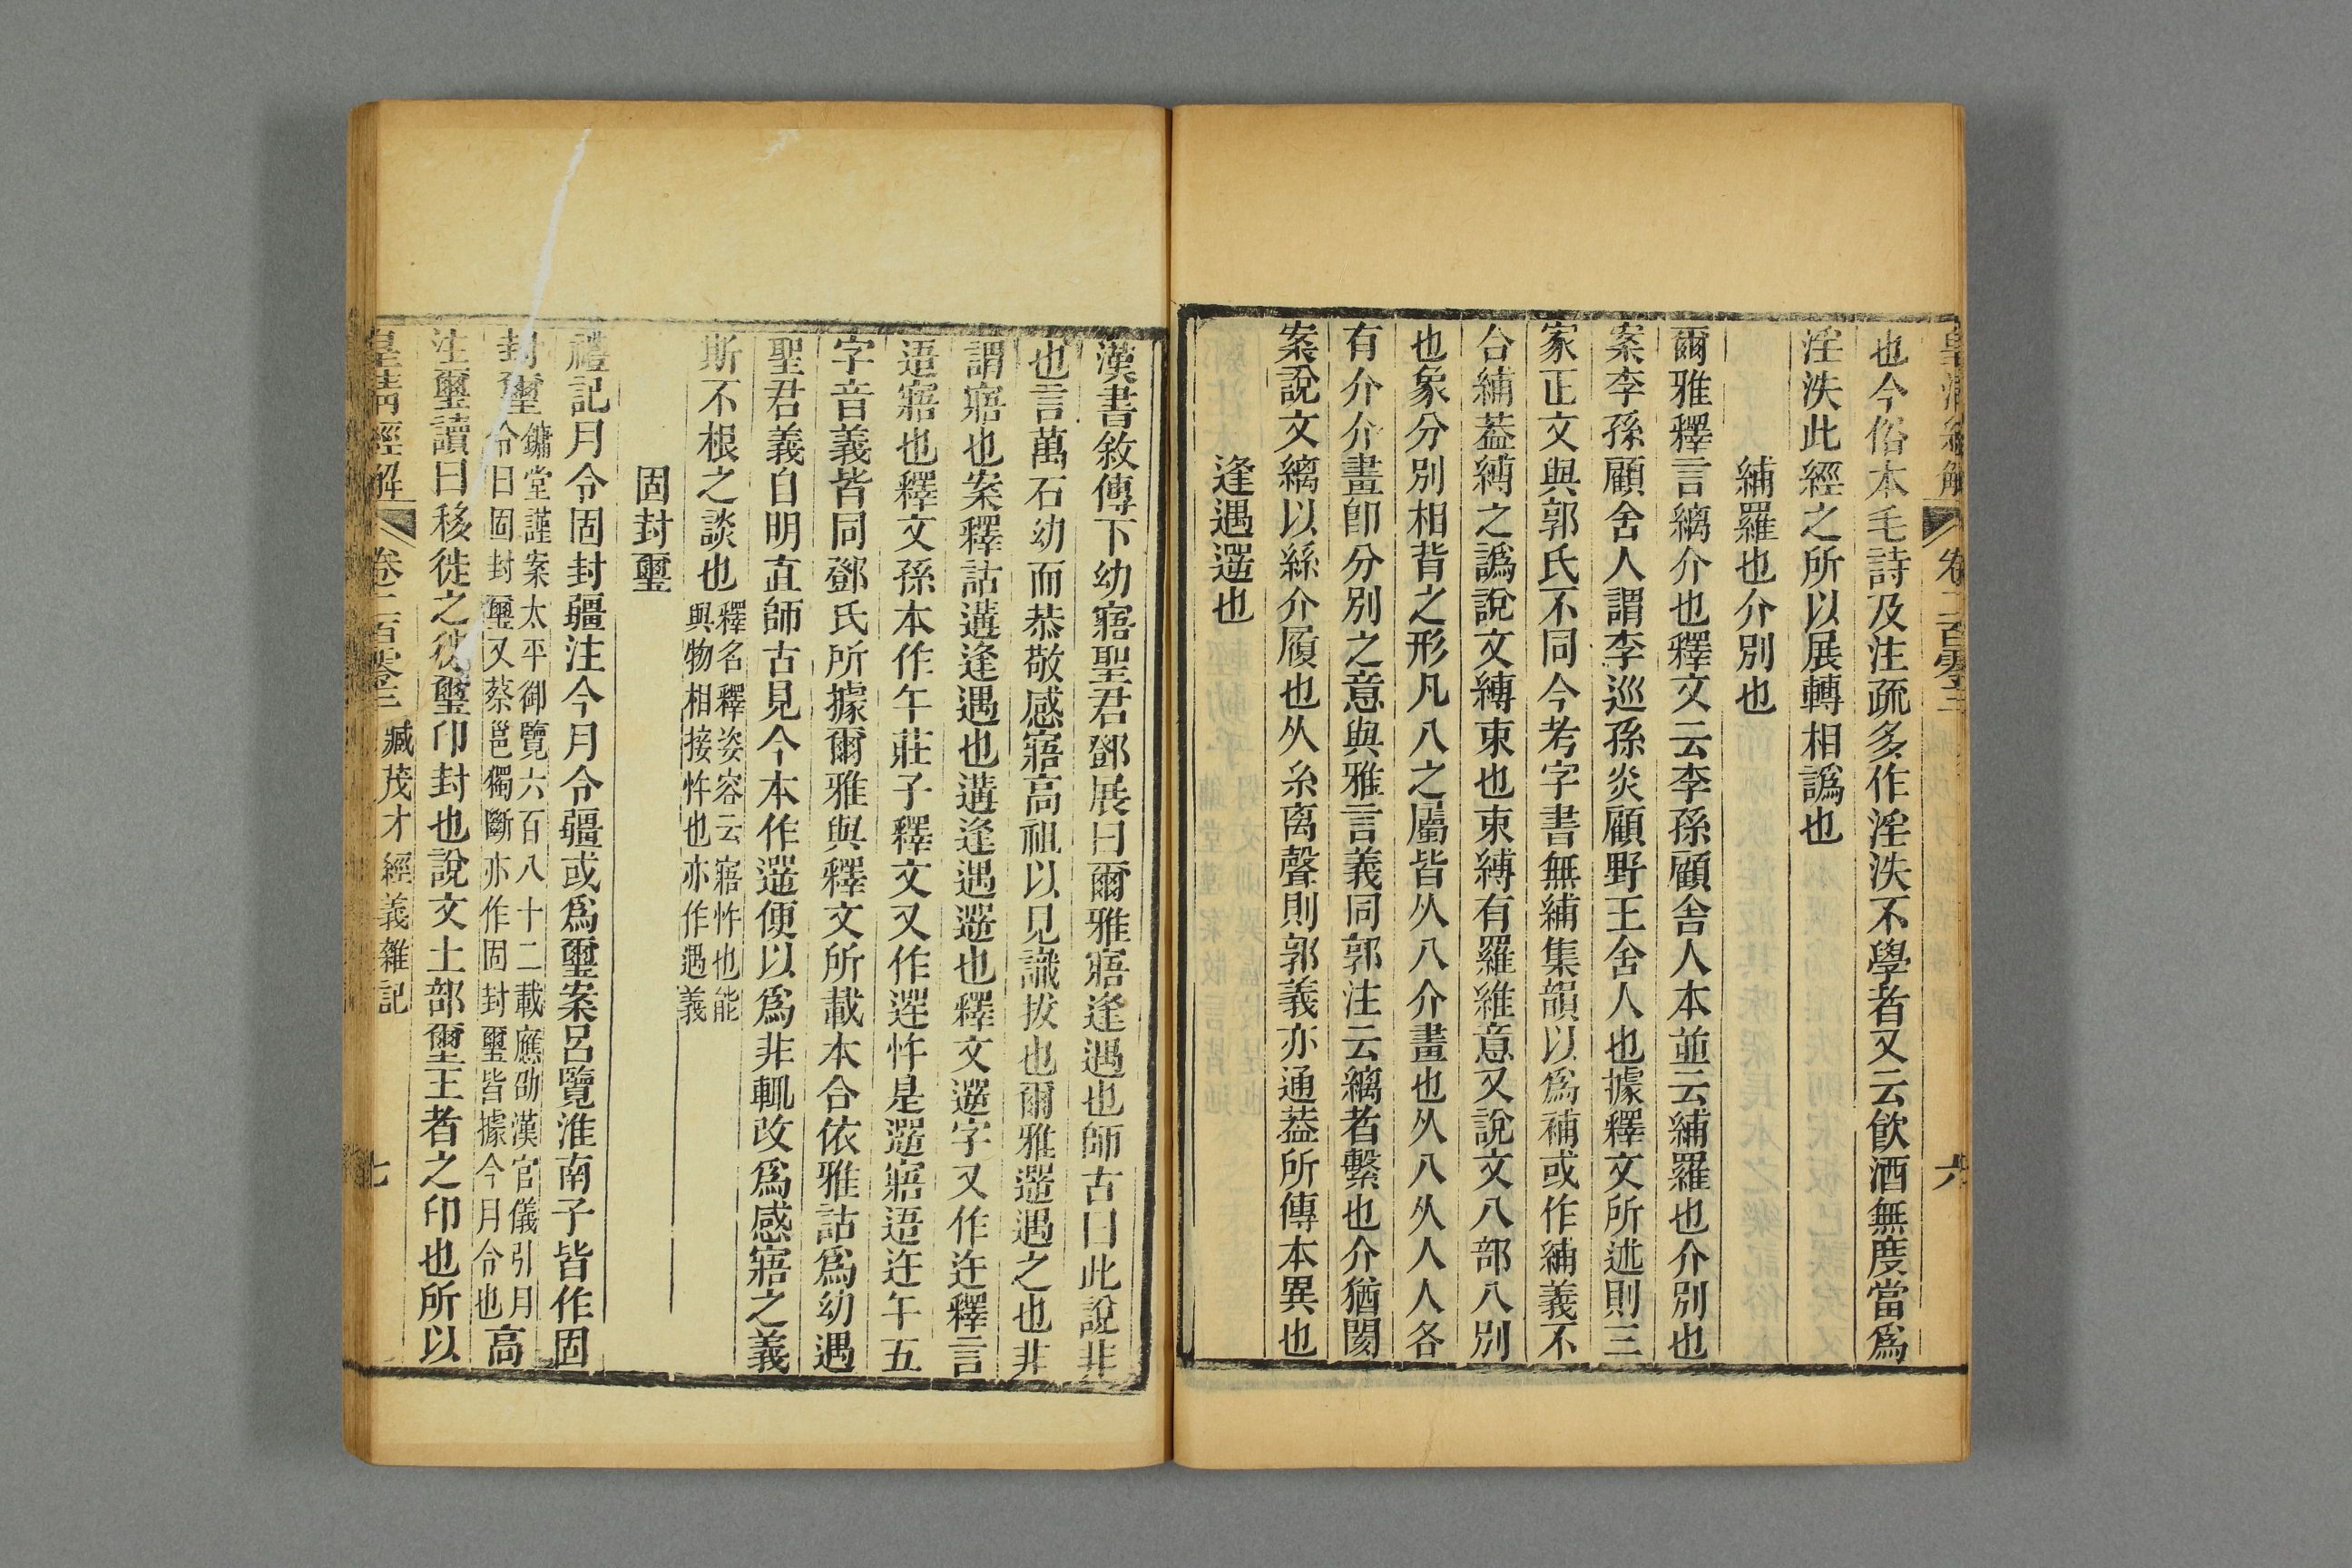 皇清經解
卷二百零三
六
也今俗本毛詩及注疏多作淫泆不學者又云飲酒無度當爲
淫泆此經之所以展轉相譌也
縔羅也介別也
爾雅釋言縭介也釋文云李孫顧舍人本並云縔羅也介別也
案李孫顧舍人謂李巡孫炎顧野王舍人也據釋文所述則三
家正文與郭氏不同今考字書無縔集韻以爲補或作縔義不
合縔葢縛之譌說文縛束也束縛有羅維意又說文八部八別
也象分別相背之形凡八之屬皆从八介畫也从八从人人各
有介介畫卽分別之意與雅言義同郭注云縭者繫也介猶閡
案說文縭以絲介履也从糸离聲則郭義亦通葢所傳本異也
逢遇遻也
漢書敘傳下幼寤聖君鄧展曰爾雅寤逢遇也師古曰此說非
也言萬石幼而恭敬感寤高祖以見識拔也爾雅遻遇之也非
謂寤也案釋詁遘逢遇也遘逢遇遻也釋文遻字又作迕釋言
逜寤也釋文孫本作午莊子釋文又作遻忤是遻寤逜迕午五
字音義皆同鄧氏所據爾雅與釋文所載本合依雅詁爲幼遇
聖君義自明直師古見今本作遻便以爲非輒改爲感寤之義
斯不根之談也釋名釋姿容云寤忤也能
與物相接忤也亦作遇義
固封璽
禮記月令固封疆注今月令疆或爲璽案呂覽淮南子皆作固
封璽鏞堂謹案太平御覽六百八十二載應劭漢官儀引月
令曰固封璽又蔡邕獨斷亦作固封璽皆據今月令也高
注璽讀曰移徙之徙璽印封也說文土部壐王者之印也所以
皇清經解
卷二百零三
臧茂才經義雜記
七